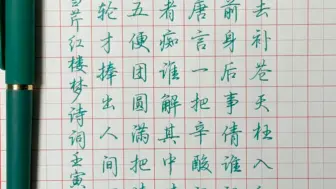 去补苍天枉入
前身后事倩谁
唐言一把辛酸
者痴谁解其中
五便团圆满把
轮才捧出人间
芹红楼梦诗词壬寅